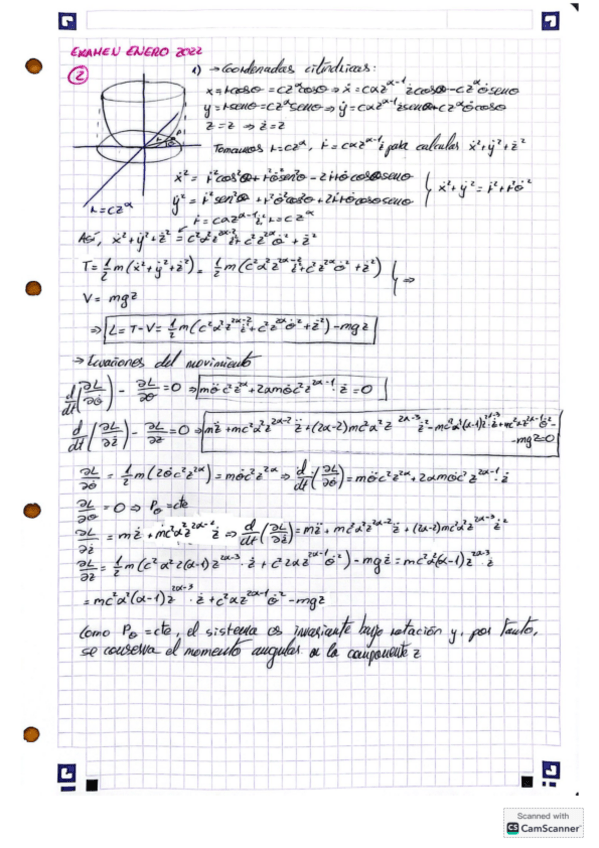 EXAMEN ENERO 2022
② 1) → Coordenadas cilíndricas:
x = r cosθ = cz^α cosθ ⇒ ẋ = cαz^(α-1) ż cosθ - cz^α θ̇ senθ
y = r senθ = cz^α senθ ⇒ ẏ = cαz^(α-1) ż senθ + cz^α θ̇ cosθ
z = z ⇒ ż = ż
Tomamos r = cz^α, ṙ = cαz^(α-1) ż para calcular ẋ² + ẏ² + ż²
ẋ² = ṙ² cos²θ + r²θ̇² sen²θ - 2rṙθ̇ cosθ senθ
ẏ² = ṙ² sen²θ + r²θ̇² cos²θ + 2rṙθ̇ cosθ senθ } ẋ² + ẏ² = ṙ² + r²θ̇²
r = cz^α
ṙ = cαz^(α-1) ż, r = cz^α
Así, ẋ² + ẏ² + ż² = c²α²z^(2α-2) ż² + c²z^(2α) θ̇² + ż²
T = 1/2 m(ẋ² + ẏ² + ż²) = 1/2 m(c²α²z^(2α-2) ż² + c²z^(2α) θ̇² + ż²) } ⇒
V = mgz
⇒ L = T - V = 1/2 m(c²α²z^(2α-2) ż² + c²z^(2α) θ̇² + ż²) - mgz
→ Ecuaciones del movimiento
d/dt(∂L/∂θ̇) - ∂L/∂θ = 0 ⇒ mθ̈c²z^(2α) + 2αmθ̇c²z^(2α-1) · ż = 0
d/dt(∂L/∂ż) - ∂L/∂z = 0 ⇒ mz̈ + mc²α²z^(2α-2) z̈ + (2α-2)mc²α²z^(2α-3) ż² - mc²α²(α-1)z^(2α-3) ż + mc²αz^(2α-1) θ̇² -
- mg = 0
∂L/∂θ̇ = 1/2 m(2θ̇c²z^(2α)) = mθ̇c²z^(2α) ⇒ d/dt(∂L/∂θ̇) = mθ̈c²z^(2α) + 2αmθ̇c²z^(2α-1) · ż
∂L/∂θ = 0 ⇒ Pθ = cte
∂L/∂ż = mż + mc²α²z^(2α-2) ż ⇒ d/dt(∂L/∂ż) = mz̈ + mc²α²z^(2α-2) z̈ + (2α-2)mc²α²z^(2α-3) ż²
∂L/∂z = 1/2 m(c²α²2(α-1)z^(2α-3) · ż + c²2αz^(2α-1) θ̇²) - mgz = mc²α²(α-1)z^(2α-3) · ż
= mc²α²(α-1)z^(2α-3) · ż + c²αz^(2α-1) θ̇² - mgz
Como Pθ = cte, el sistema es invariante bajo rotación y, por tanto,
se conserva el momento angular en la componente z
Scanned with
CS CamScanner